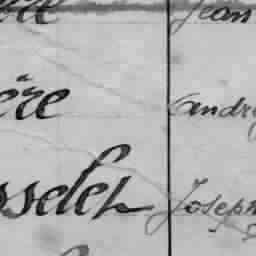 Jean
ère Andre
sselet Joseph